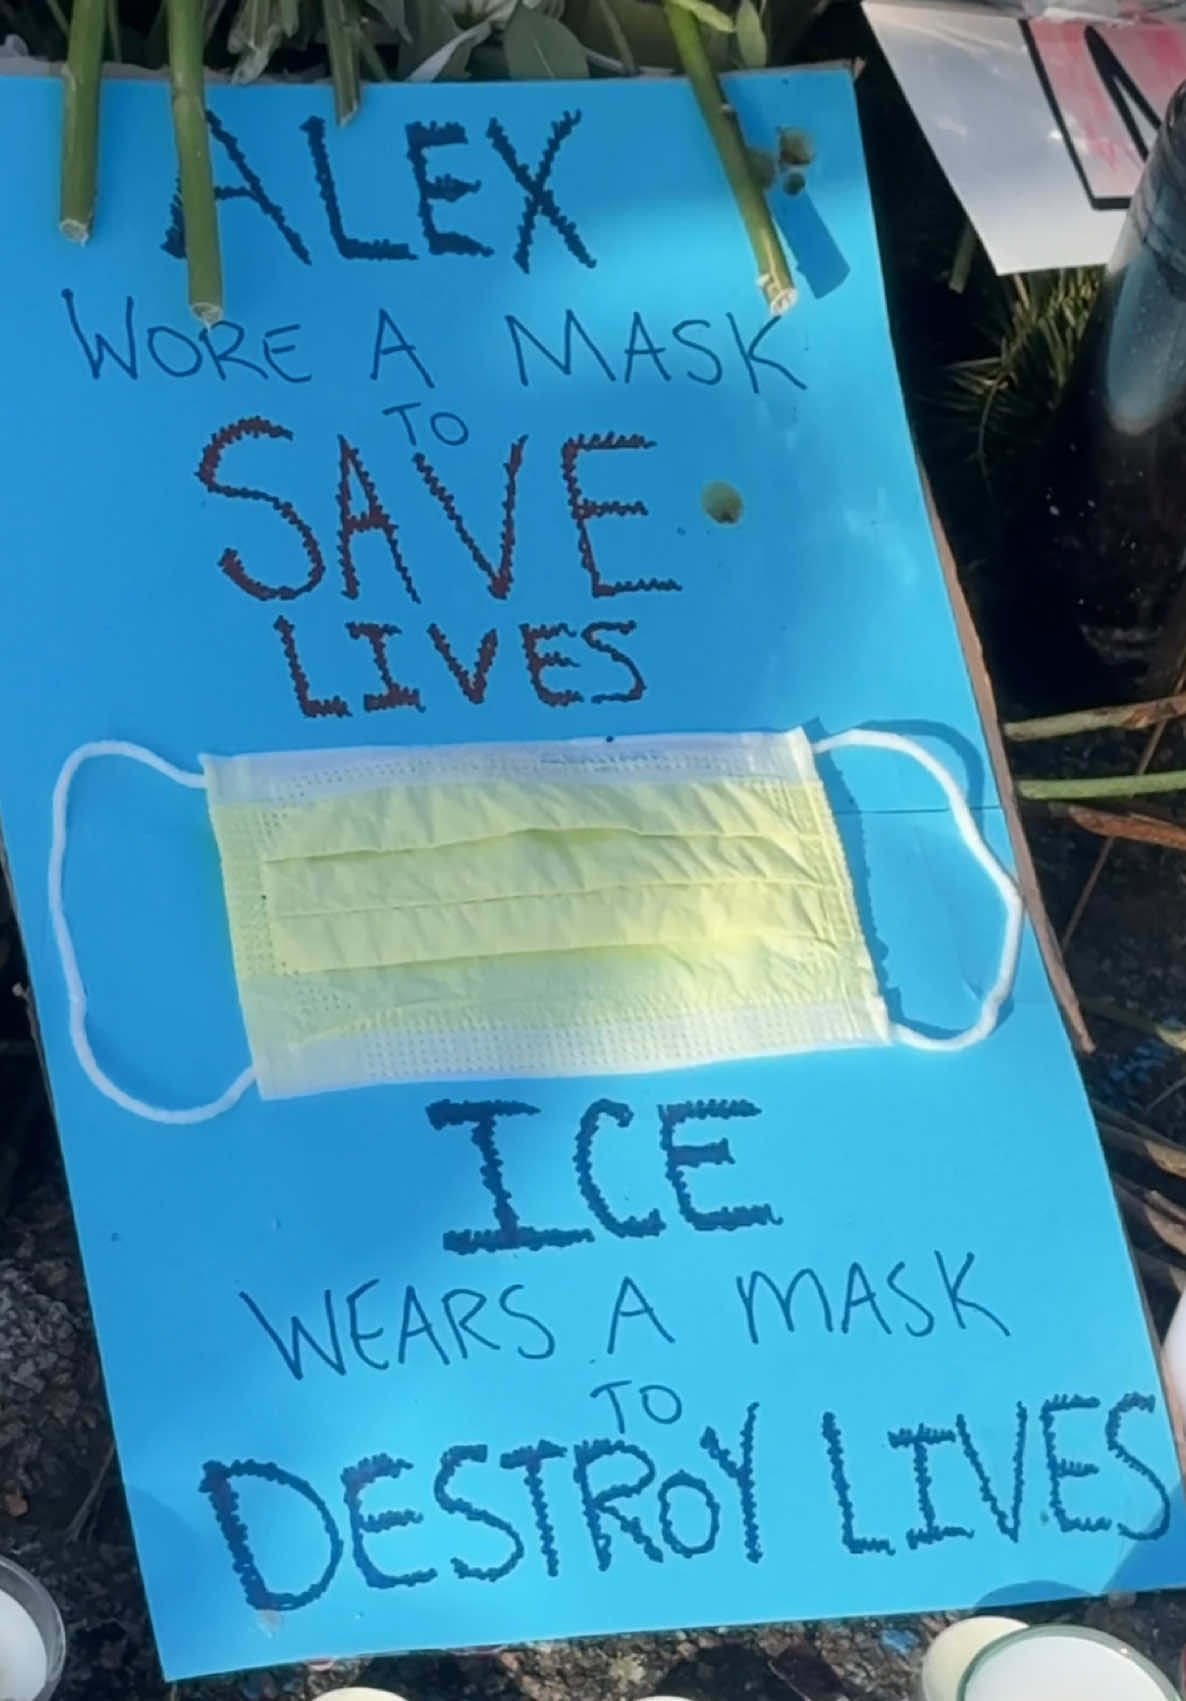 ALEX
WORE A MASK
TO
SAVE
LIVES
ICE
WEARS A MASK
TO
DESTROY LIVES